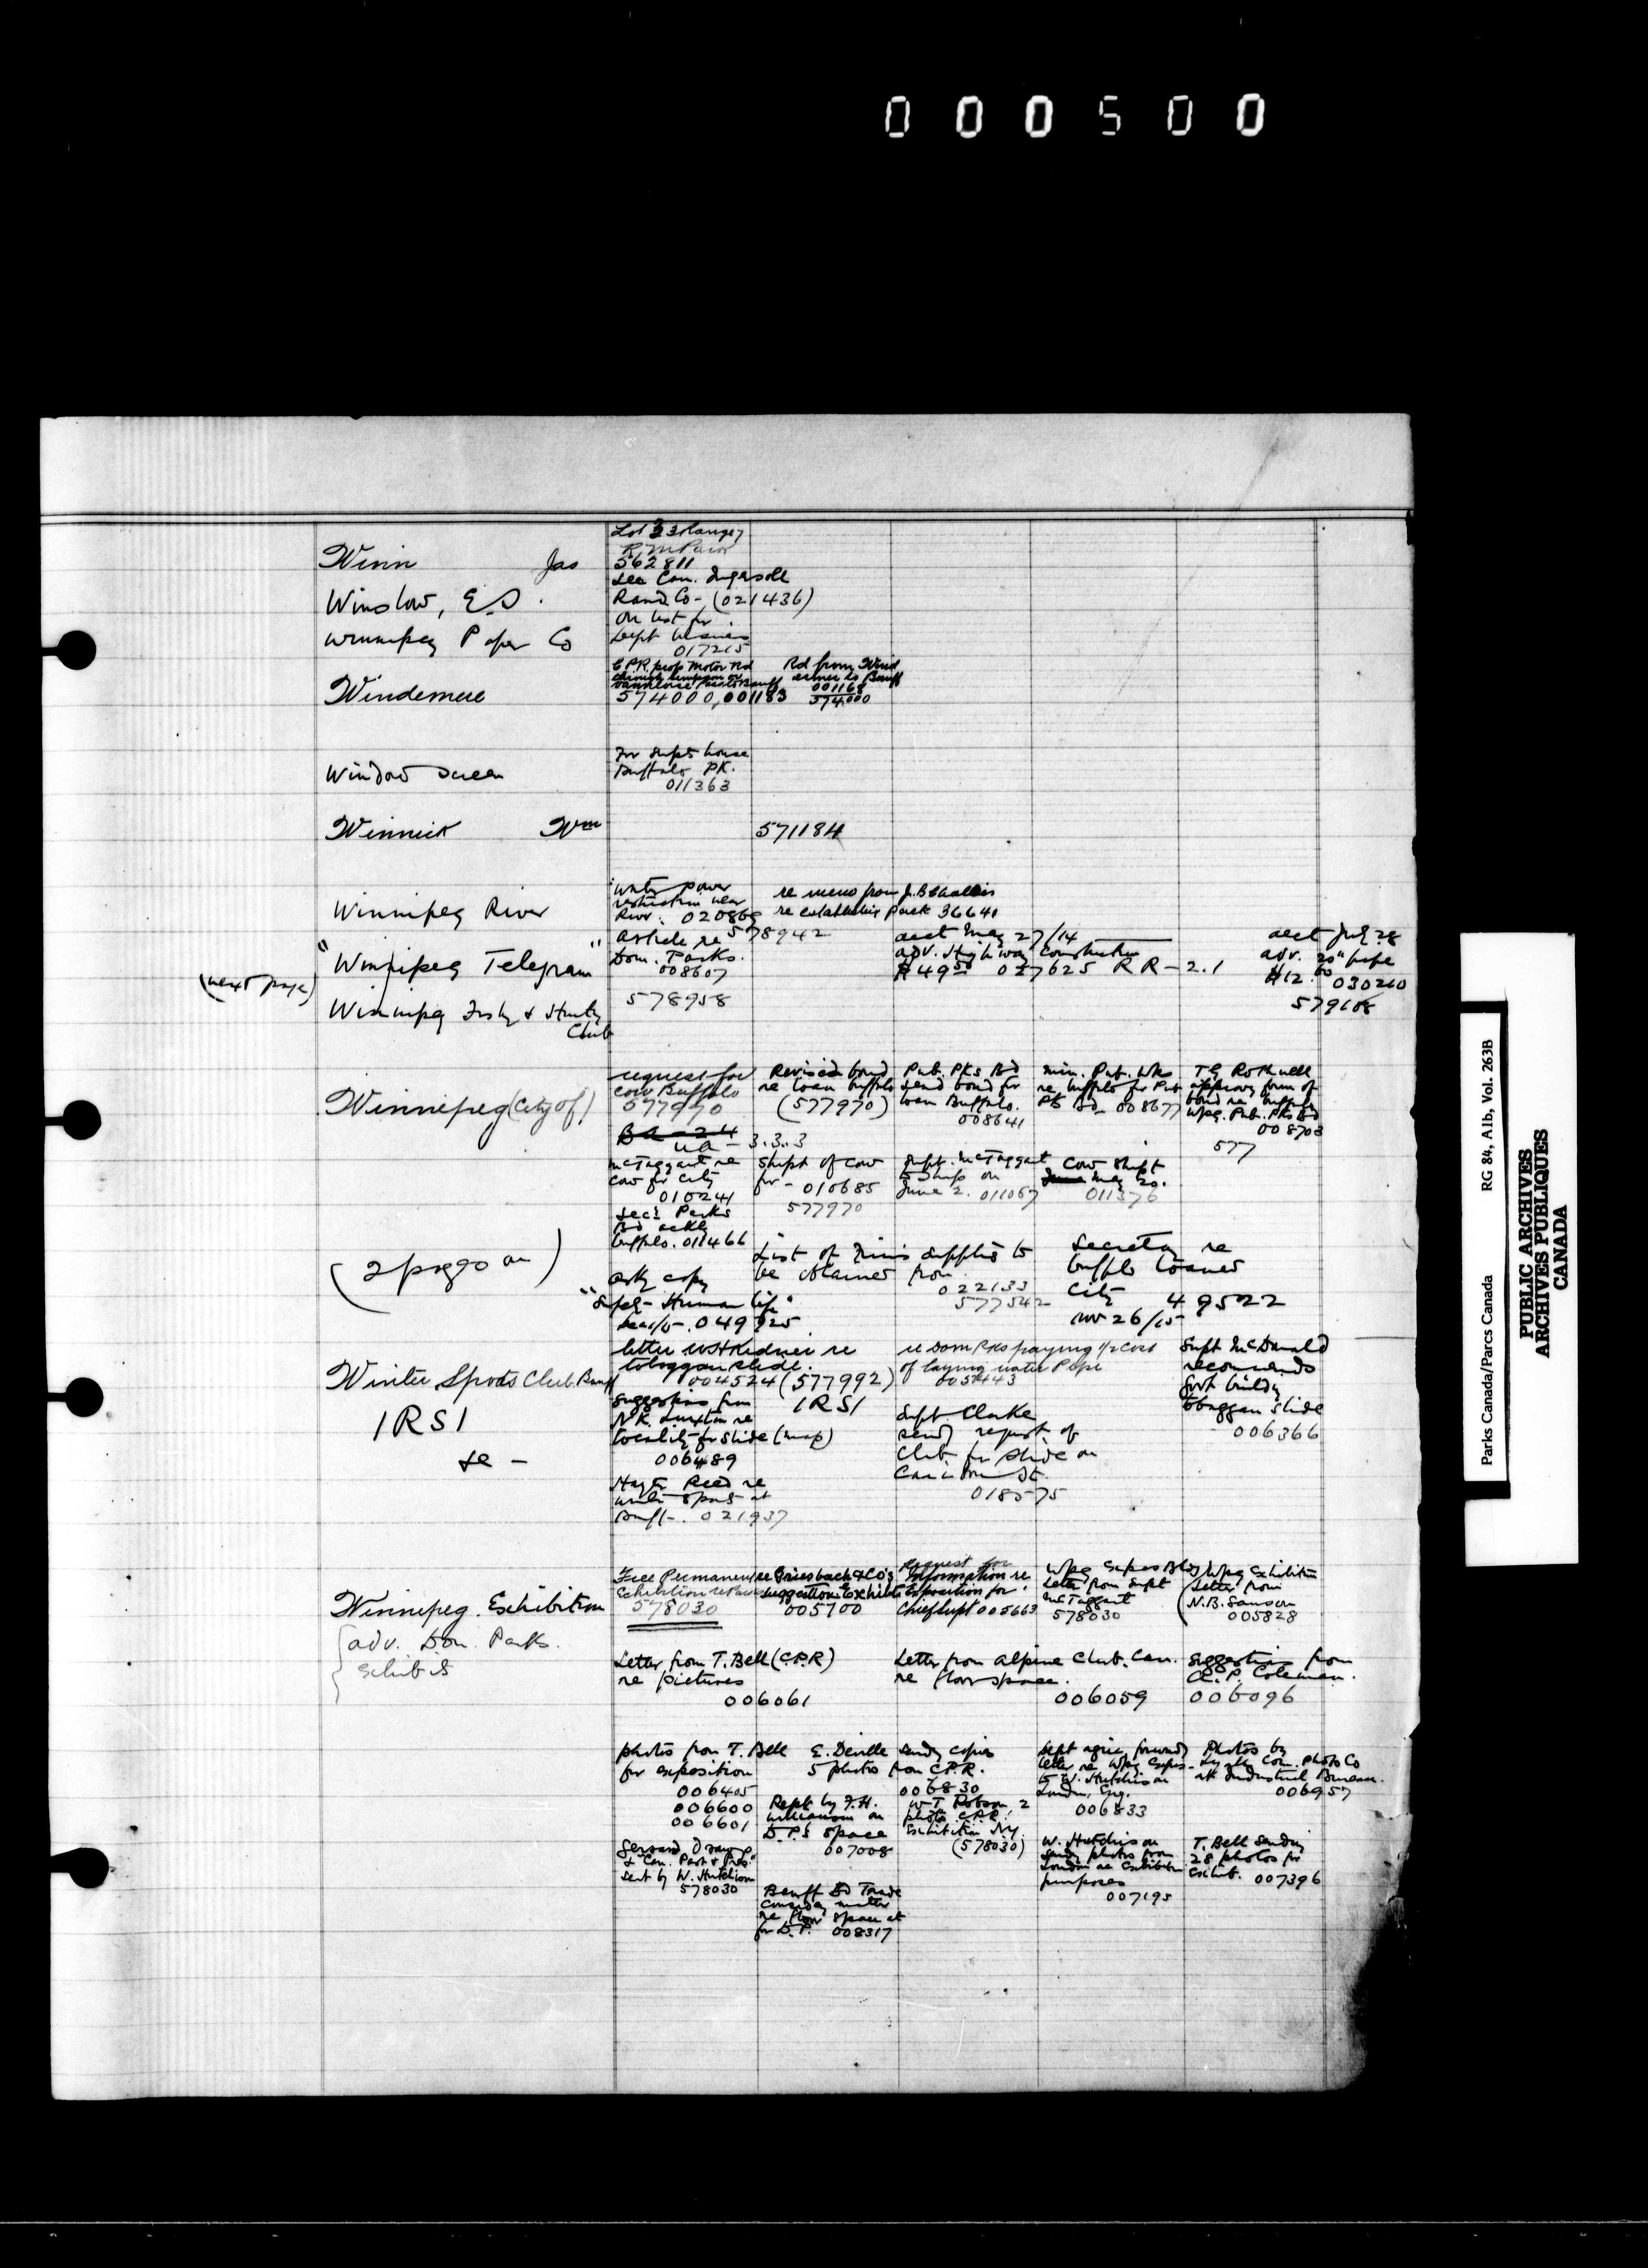 000500
Lot 33 Range 7
R. M. Park
Winn Jas 562811
See Can. Ingersoll
Winslow, E.D. Rand Co - (021436)
On list for
Winnipeg Paper Co Dept business
017215
C.P.R. prop motor rd
Windemere
574000, 001183
Rd from Wind
ermere to Banff
001168
574000
For Supts house
Window Screen Buffalo Pk.
011363
Winnick Wm 571184
Water power
restriction near
Winnipeg River River. 020869
re memo from J.B. Challies
re establishing park 36641
"Winnipeg Telegram"
Article re 578942
Dom. Parks.
008607
acct May 27/14
adv. Highway Construction
$49.50 027625 RR-2.1
acct July 28
adv. 20" pipe
$12.60 030210
579108
(next page)
Winnipeg Fishg & Huntg
Club
578958
Winnepeg (City of)
request for
cow Buffalo
577970
Ba-24
Ua - 3.3.3
Revised bond
re loan buffalo
(577970)
Pub. Pks Bd
send bond for
loan Buffalo.
008641
Min. Pub. Wks
re buffalo for Pub
Pk Bd. 008677
T.G. Rothwell
approvg form of
bond re buffalo
Wpg. Pub. Pks Bd
008703
577
McTaggart re
cow for city
010241
Shipt of cow
for - 010685
577970
Supt. McTaggart
to ship on
June 2. 011067
Cow shipt
June May 20.
011376
Secy Parks
Bd ackg
buffalo. 011466
(2 pages on)
askg copy
"Human life"
049725
List of Firms supplies to
be obtained from.
022133
577542
Secretary re
buffalo loaned
City 49522
Nov 26/15
Winter Sports Club. Banff
IRSI
letter W S Kidner re
toboggan slide.
004524 (577992)
IRSI
re Dom Pks paying 1/2 cost
of laying water Pipe
005443
Supt McDonald
recommends
Govt building
toboggan slide
006366
Suggestions from
N.K. Luxton re
locality for slide (map)
006489
Supt. Clarke
sends request of
Club for slide on
Caribou St.
018575
Hayter Reed re
winter sports at
Banff. 021937
Winnipeg. Exhibition
adv. Dom. Parks.
Exhibit
Free Permanent
Exhibition re Parks
578030
re Griesbach & Co's
suggestion Exhibits
005700
Request for
Information re
Exposition for
Chief Supt 005663
Wpg Expos Bldg
Letter from Supt
McTaggart
578030
Wpg Exhibition
Letter from
N.B. Sanson
005828
Letter from T. Bell (C.P.R)
re pictures
006061
Letter from Alpine Club. Can.
re floor space.
006059
Suggestions from
A. P. Coleman.
006096
photos from T. Bell
for exposition
006405
006600
006601
E. Deville sendg copies
5 photos from C.P.R.
006830
Dept agric forwardg
letter re Wpg Expos-
to W. Hutchison
London, Eng.
006833
Photos by
Com. Photo Co
at Industrial Bureau.
006957
Rept by F.H.
Williamson on
D.P.'s space
007008
W. T. Robson 2
photos C.P.R.
Exhibition N.Y.
(578030)
W. Hutchison
sendg photos from
London re exhibition
purposes
007195
T. Bell sending
28 photos for
exhibt. 007396
sent by W. Hutchison
578030
Banff Bd Trade
considg matter
re floor space at
for D.P. 008317
Parks Canada/Parcs Canada RG 84, A1b, Vol. 263B
PUBLIC ARCHIVES
ARCHIVES PUBLIQUES
CANADA